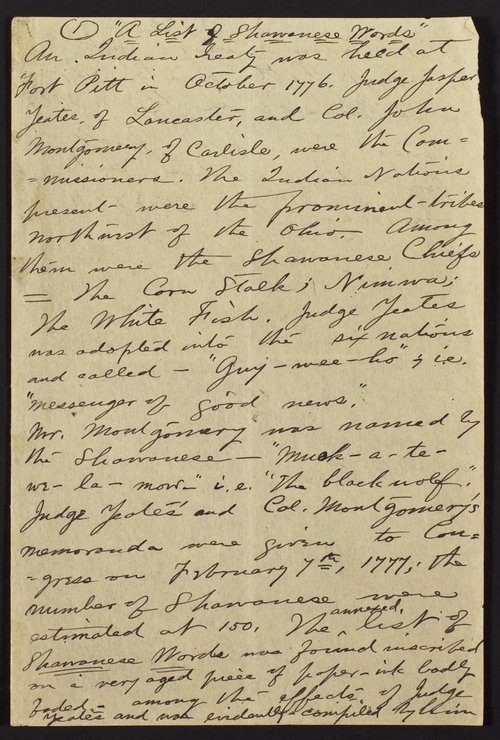 ① "A List of Shawanese Words"
An Indian treaty was held at
Fort Pitt in October 1776. Judge Jasper
Yeates, of Lancaster, and Col. John
Montgomery, of Carlisle, were the Com=
=missioners. The Indian Nations
present were the prominent tribes
northwest of the Ohio. Among
them were the Shawanese Chiefs
= The Corn Stalk; Nimwa;
The White Fish. Judge Yeates
was adopted into the six nations
and called – "Guy-wee-ho"; i.e.
"messenger of good news."
Mr. Montgomery was named by
the Shawanese – "Muck-a-te-
we-la-mow-" i.e. "The black wolf."
Judge Yeates and Col. Montgomery's
memoranda were given to Con=
=gress on February 7th, 1777; the
number of Shawanese were
estimated at 150. The annexed list of
Shawanese Words was found inscribed
on a very aged piece of paper-ink badly
faded – among the effects of Judge
Yeates and was evidently compiled by him